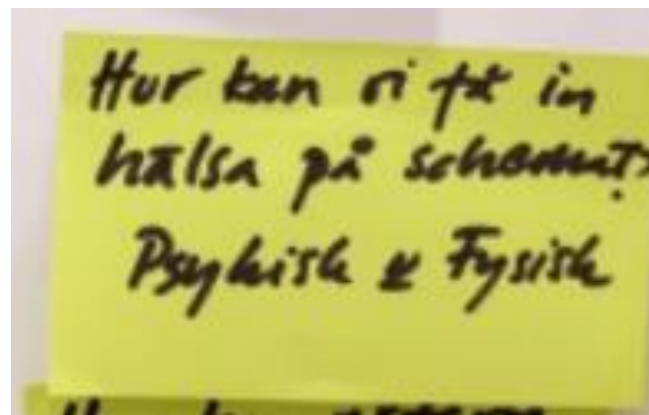 Hur kan vi få in
hälsa på schemat?
Psykisk & Fysisk